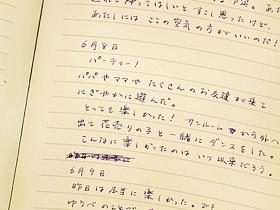 帰ってほしいとすこし思ったけど
あたしには ここの空気の方がいいのだ
6月8日
パーティー!
パパやママや たくさんのお友達が来て
にぎやかに遊んだ。
とっても楽しかった! サンルームから外へ
出て 花売りの子と一緒にダンスをした。
こんなに楽しかったのは いつ以来だろう。
6月9日
昨日は本当に楽しかった。でも
ゆうべのことで